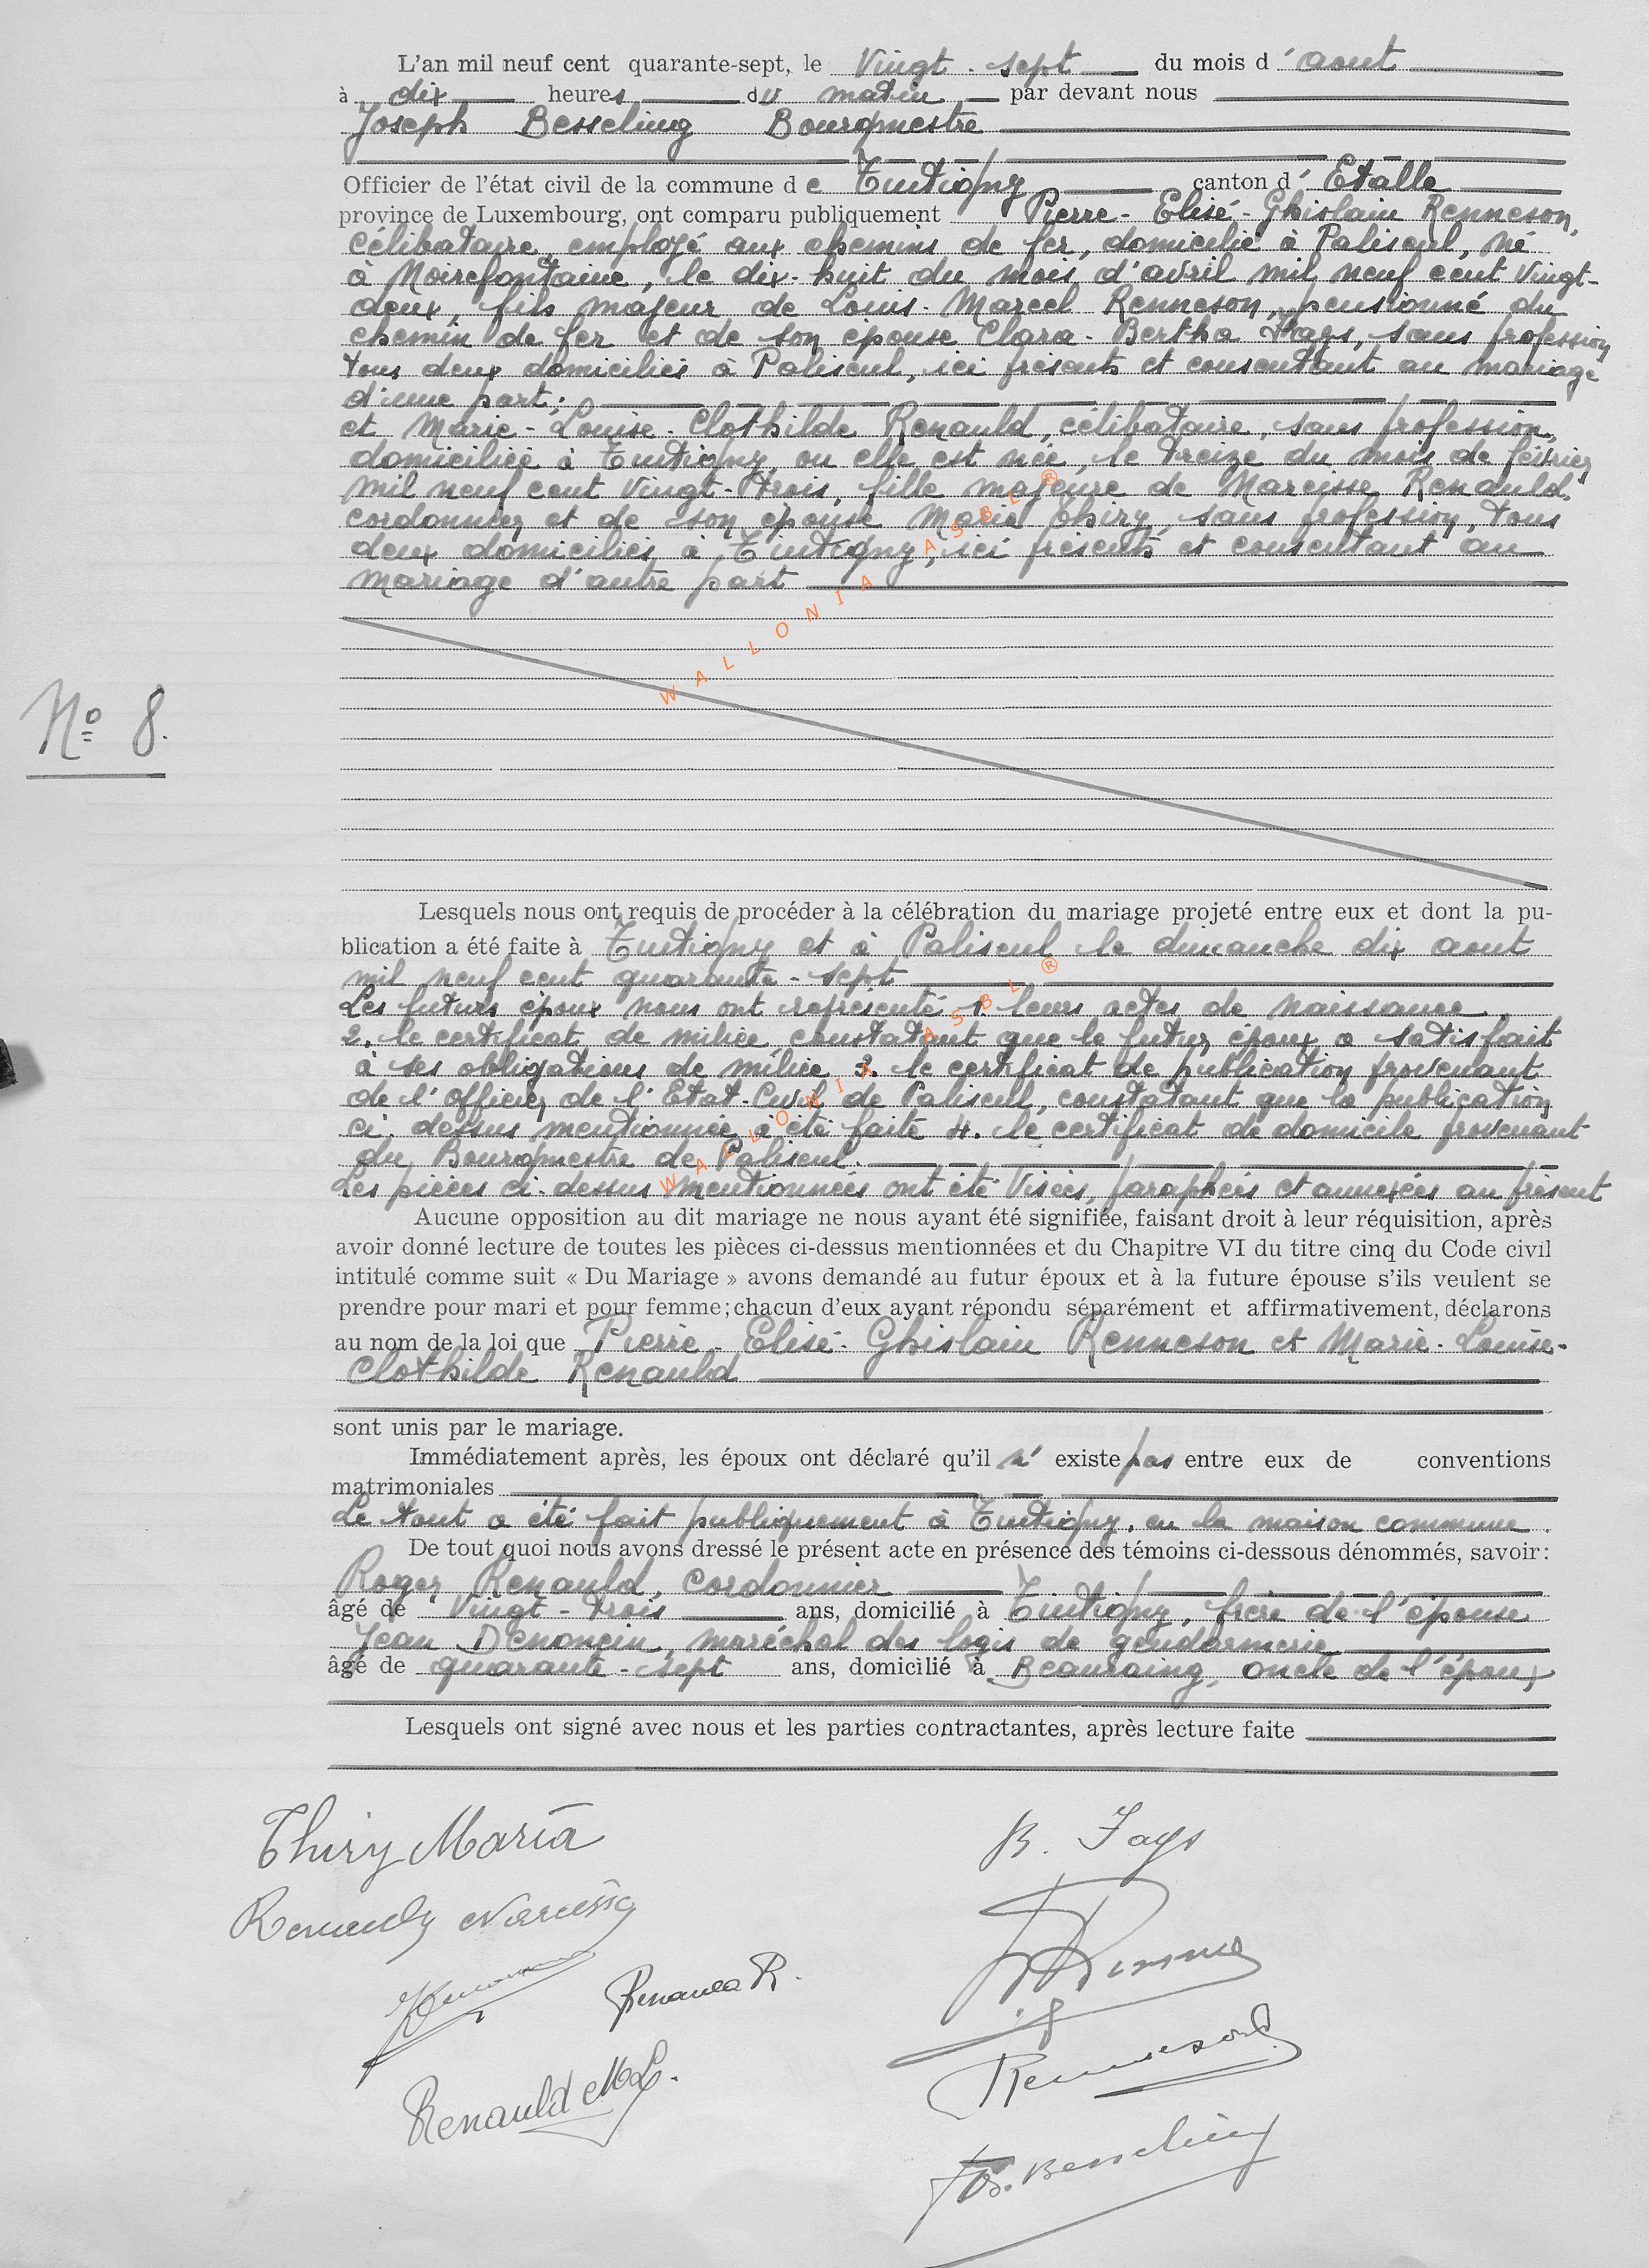 L'an mil neuf cent quarante-sept, le Vingt-sept du mois d'aout
à dix heures du matin par devant nous
Joseph Besseling Bourgmestre
Officier de l'état civil de la commune de Tintigny canton d'Etalle
province de Luxembourg, ont comparu publiquement Pierre-Elisé-Ghislain Renneson,
célibataire, employé aux chemins de fer, domicilié à Paliseul, né
à Noirefontaine, le dix-huit du mois d'avril mil neuf cent Vingt-
deux, fils majeur de Louis-Marcel Renneson, pensionné du
chemin de fer et de son épouse Clara-Bertha Fays, sans profession
tous deux domiciliés à Paliseul, ici présents et consentant au mariage
d'une part;
et Marie-Louise-Clothilde Renauld, célibataire, sans profession,
domiciliée à Tintigny, ou elle est née, le treize du mois de février
mil neuf cent Vingt-trois, fille majeure de Narcisse Renauld,
cordonnier et de son épouse Maria Thiry, sans profession, tous
deux domiciliés à Tintigny, ici présents et consentant au
mariage d'autre part
N° 8.
Lesquels nous ont requis de procéder à la célébration du mariage projeté entre eux et dont la pu-
blication a été faite à Tintigny et à Paliseul le dimanche dix aout
mil neuf cent quarante-sept
Les futurs époux nous ont représenté 1. leurs actes de naissance,
2. le certificat de milice constatant que le futur époux a satisfait
à ses obligations de milice 3. le certificat de publication provenant
de l'Officier de l'Etat-Civil de Paliseul, constatant que la publication
ci-dessus mentionnée a été faite 4. le certificat de domicile provenant
du Bourgmestre de Paliseul.
Les pièces ci-dessus mentionnées ont été Visées, paraphées et annexées au présent
Aucune opposition au dit mariage ne nous ayant été signifiée, faisant droit à leur réquisition, après
avoir donné lecture de toutes les pièces ci-dessus mentionnées et du Chapitre VI du titre cinq du Code civil
intitulé comme suit « Du Mariage » avons demandé au futur époux et à la future épouse s'ils veulent se
prendre pour mari et pour femme; chacun d'eux ayant répondu séparément et affirmativement, déclarons
au nom de la loi que Pierre-Elisé-Ghislain Renneson et Marie-Louise-
Clothilde Renauld
sont unis par le mariage.
Immédiatement après, les époux ont déclaré qu'il n'existe pas entre eux de conventions
matrimoniales
Le tout a été fait publiquement à Tintigny, en la maison commune.
De tout quoi nous avons dressé le présent acte en présence des témoins ci-dessous dénommés, savoir:
Roger Renauld, cordonnier
âgé de Vingt-trois ans, domicilié à Tintigny, frère de l'épouse
Jean Denoncin, maréchal des logis de gendarmerie
âgé de quarante-sept ans, domicilié à Beauraing, oncle de l'époux
Lesquels ont signé avec nous et les parties contractantes, après lecture faite
Thiry Maria
B. Fays
Renauld Narcisse
Renauld R.
Renneson
Renauld M L.
Jos. Besseling
WALLONIA ASBL ®
WALLONIA ASBL ®